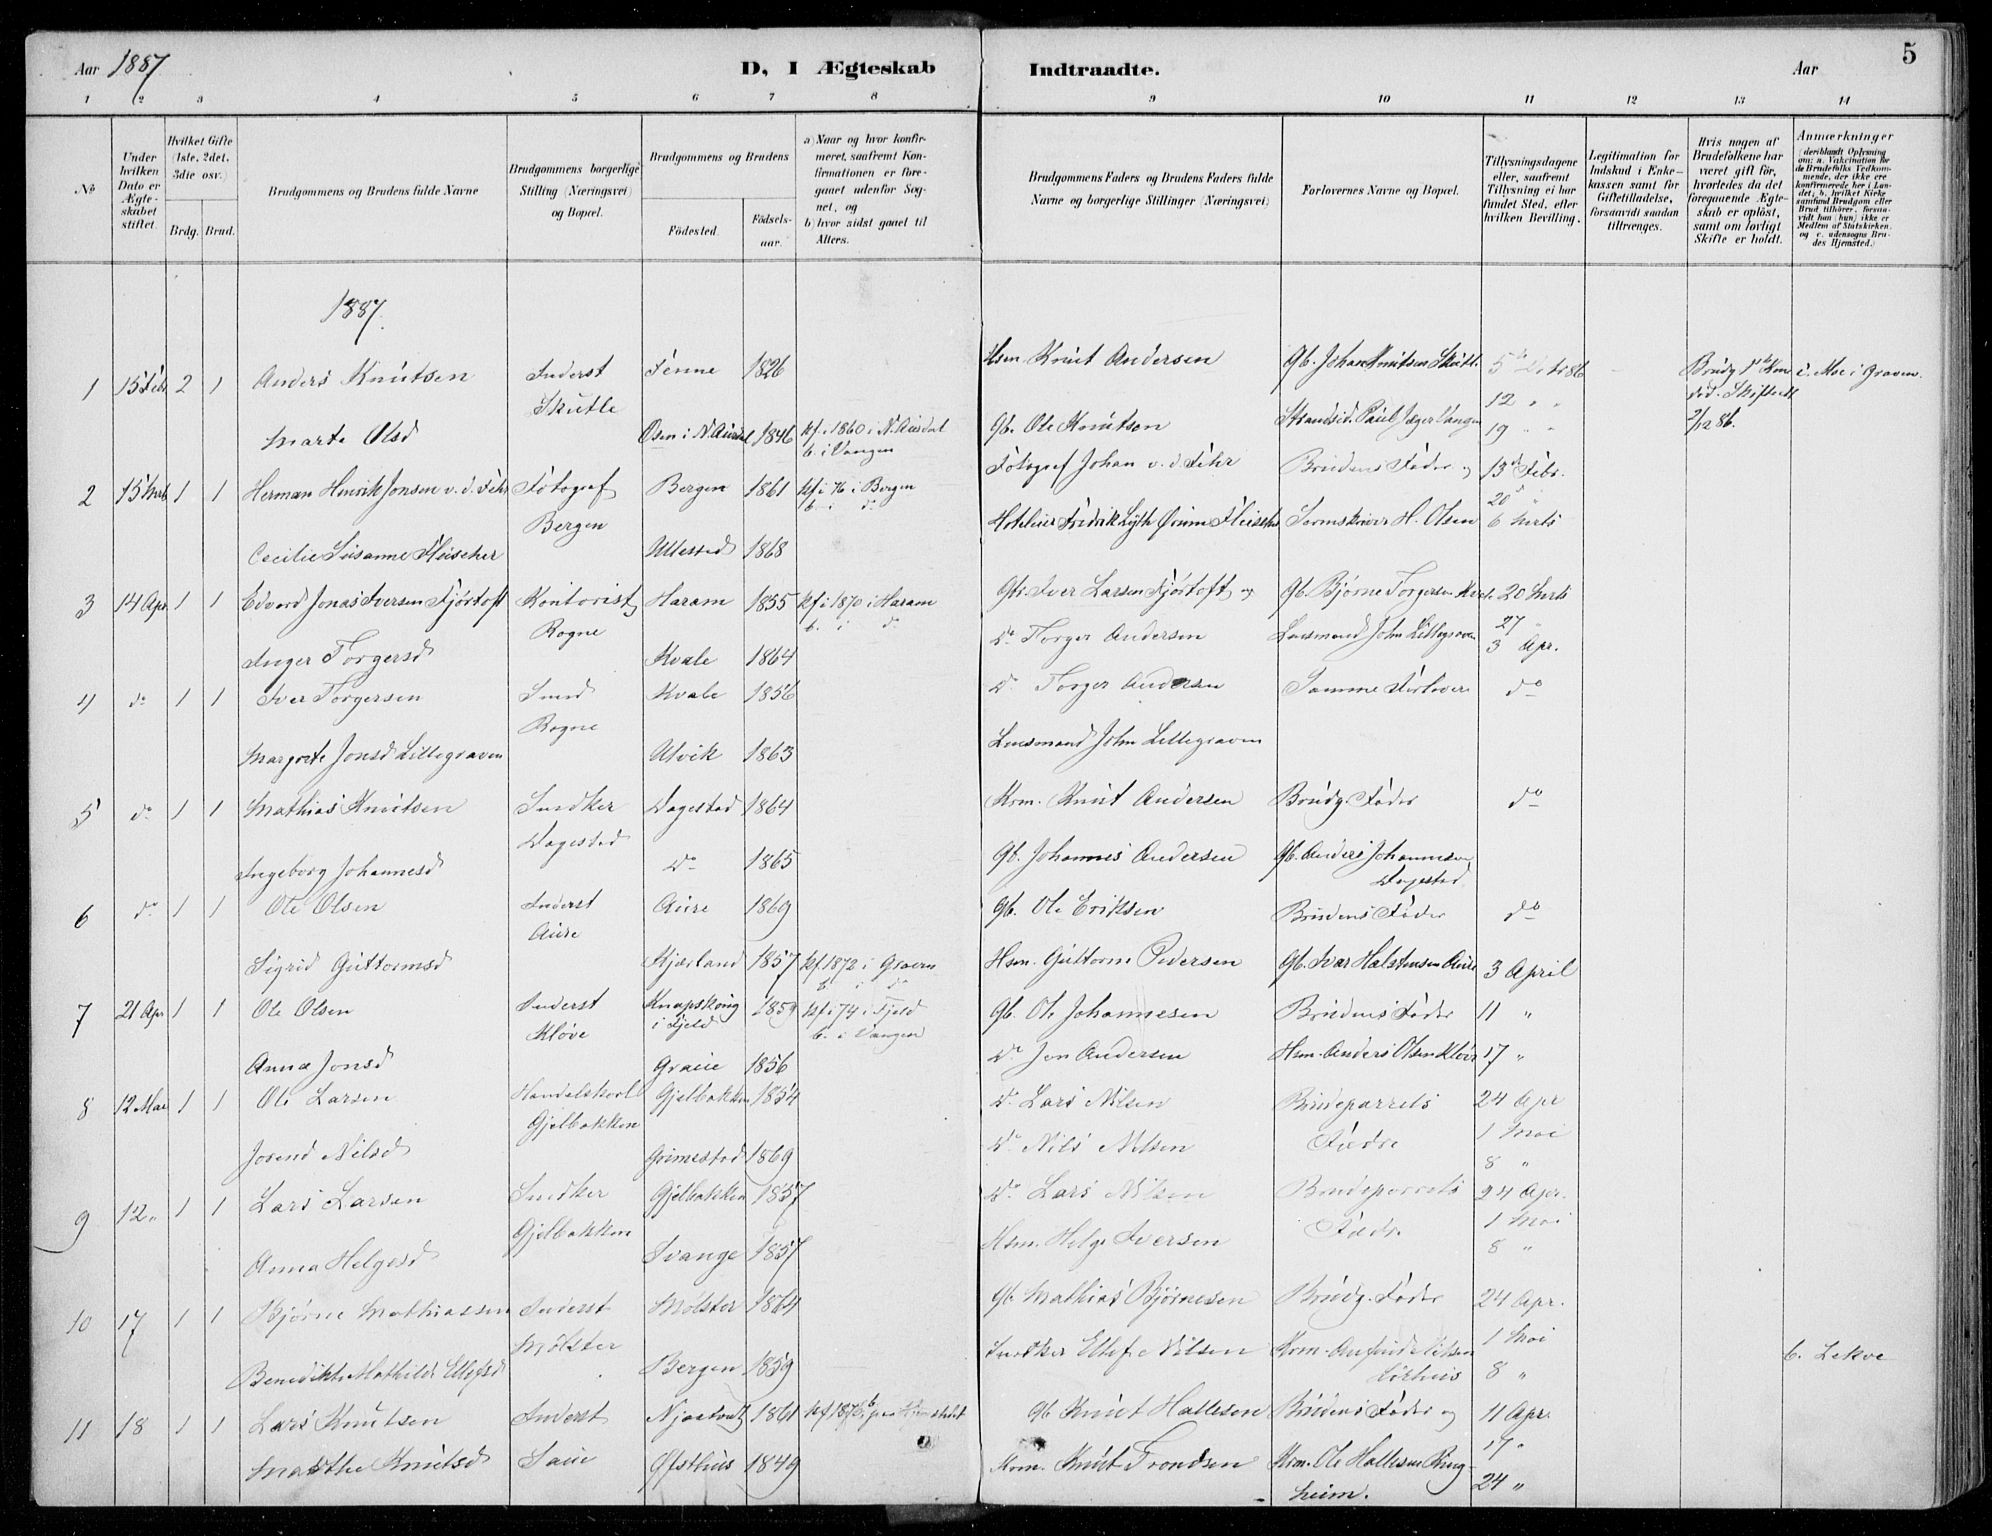 Aar 1887
D, I Ægteskab
Indtraadte.
Aar
5
1 2 3 4 5 6 7 8 9 10 11 12 13 14
No
Under hvilken Dato er Ægteskabet stiftet.
Hvilket Gifte (1ste, 2det, 3die osv.)
Brdg. Brud.
Brudgommens og Brudens fulde Navne
Brudgommens borgerlige Stilling (Næringsvei) og Bopæl.
Brudgommens og Brudens
Fødested.
Fødselsaar.
a) Naar og hvor konfirmeret, saafremt Konfirmationen er foregaaet udenfor Sognet, og
b) hvor sidst gaaet til Alters.
Brudgommens Faders og Brudens Faders fulde Navne og borgerlige Stillinger (Næringsvei)
Forlovernes Navne og Bopæl.
Tillysningsdagene eller, saafremt Tillysning ei har fundet Sted, efter hvilken Bevilling.
Legitimation for Indskud i Enkekassen samt for Giftetilladelse, forsaavidt saadan tiltrænges.
Hvis nogen af Brudefolkene har været gift før, hvorledes da det foregaaende Ægteskab er opløst, samt om lovligt Skifte er holdt.
Anmærkninger (deriblandt Oplysning om: a. Vakcination for de Brudefolks Vedkommende, der ikke ere konfirmerede her i Landet; b. hvilket Kirkesamfund Brudgom eller Brud tilhører, forsaavidt han (hun) ikke er Medlem af Statskirken, og c. udensogns Brudes Hjemsted.)
1887.
1 15 Febr 2 1 Anders Knutsen Inderst Tenne 1826 Hsm. Knut Andersen Gb. Johan Knutsen Skutl. 12 " "
Skutle
Marte Olsd Osen i N. Aurdal 1846 kf. 1860 i N. Aurdal Gb. Ole Knutsen Strandsid. Paul Jæger Vangen 19 " "
b. i Vangen
2/12 86.
2 15 Mrts 1 1 Herman Henrik Jonsen v. d. Fehr Fotograf Bergen 1861 kf i 76 i Bergen Fotograf Johan v. d. Fehr Brudens Fader og 13de Febr.
Bergen b. i do 20 "
Cecilie Susanne Fleischer Utlestad 1868 Hotelier Fredrik Lyth Ørum Fleischer H. Olsen 6 Mrts
3 14 Apr 1 1 Edvard Jonas Iversen Fjørtoft Kontorist Haram 1855 kf i 1870 i Haram Gb. Iver Larsen Fjørtoft og Gb. Bjørne Torgersen 20 Mrts
Rogne b. i do 27 "
Inger Torgersd Kvale 1864 Do Torger Andersen Lensmand John Lillegraven 3 Apr.
4 do 1 1 Iver Torgersen Smed Kvale 1856 Do Torger Andersen Samme Forlovere do
Rogne
Margrete Jonsd Lillegraven Utvik 1863 Lensmand John Lillegraven
5 do 1 1 Mathias Knutsen Snedker Dagestad 1864 Hsm. Knut Andersen Brudg. Fader do
Dagestad
Ingeborg Johannesd Do 1865 Gb. Johannes Andersen Gb. Anders Johannesen
Dagestad
6 do 1 1 Ole Olsen Inderst Aure 1869 Gb. Ole Eriksen Brudens Fader do
Aure
Sigrid Guttormsd Kjærland 1857 kf. 1872 i Graven Hsm. Guttorm Pedersen Gb. Ivar Halstensen Aure 3 April
b. i do
7 21 Apr 1 1 Ole Olsen Inderst Knapskoug i Fjeld 1859 kf i 74 i Fjeld Gb. Ole Johannesen Brudens Fader 11 "
Kløve b. i Vangen
Anna Jonsd Graue 1856 Do Jon Andersen Hsm. Anders Olsen Kløve 17 "
8 12 Mai 1 1 Ole Larsen Handelskarl Gjelbakken 1854 Do Lars Nilsen Brudeparrets 24 Apr
Gjelbakken 1 Mai
Josend Nilsd Grimestad 1869 Do Nils Nilsen Fædre 8 "
9 12 " 1 1 Lars Larsen Snedker Gjelbakken 1857 Do Lars Nilsen Brudeparrets 24 Apr.
Gjelbakken 1 Mai
Anna Helgesd Svange 1857 Hsm. Helge Iversen Fædre 8 "
10 17 1 1 Bjørne Mathiassen Inderst Mølster 1864 Gb Mathias Bjørnesen Brudg. Fader 24 Apr.
Mølster 1 Mai
Benedikte Mathilde Ellefsd Bergen 1859 Snedker Ellef Nilsen 8 "
b. Lekve
11 18 1 1 Lars Knutsen Inderst 1861 Gb Knut Hallesen Brudens Fader og 11 Apr.
17 "
Marthe Knutsd Saue Øfsthus 1849 Hsm. Knut Trondsen Hsm. Ole Hallesen Ring-
heim. 24 "